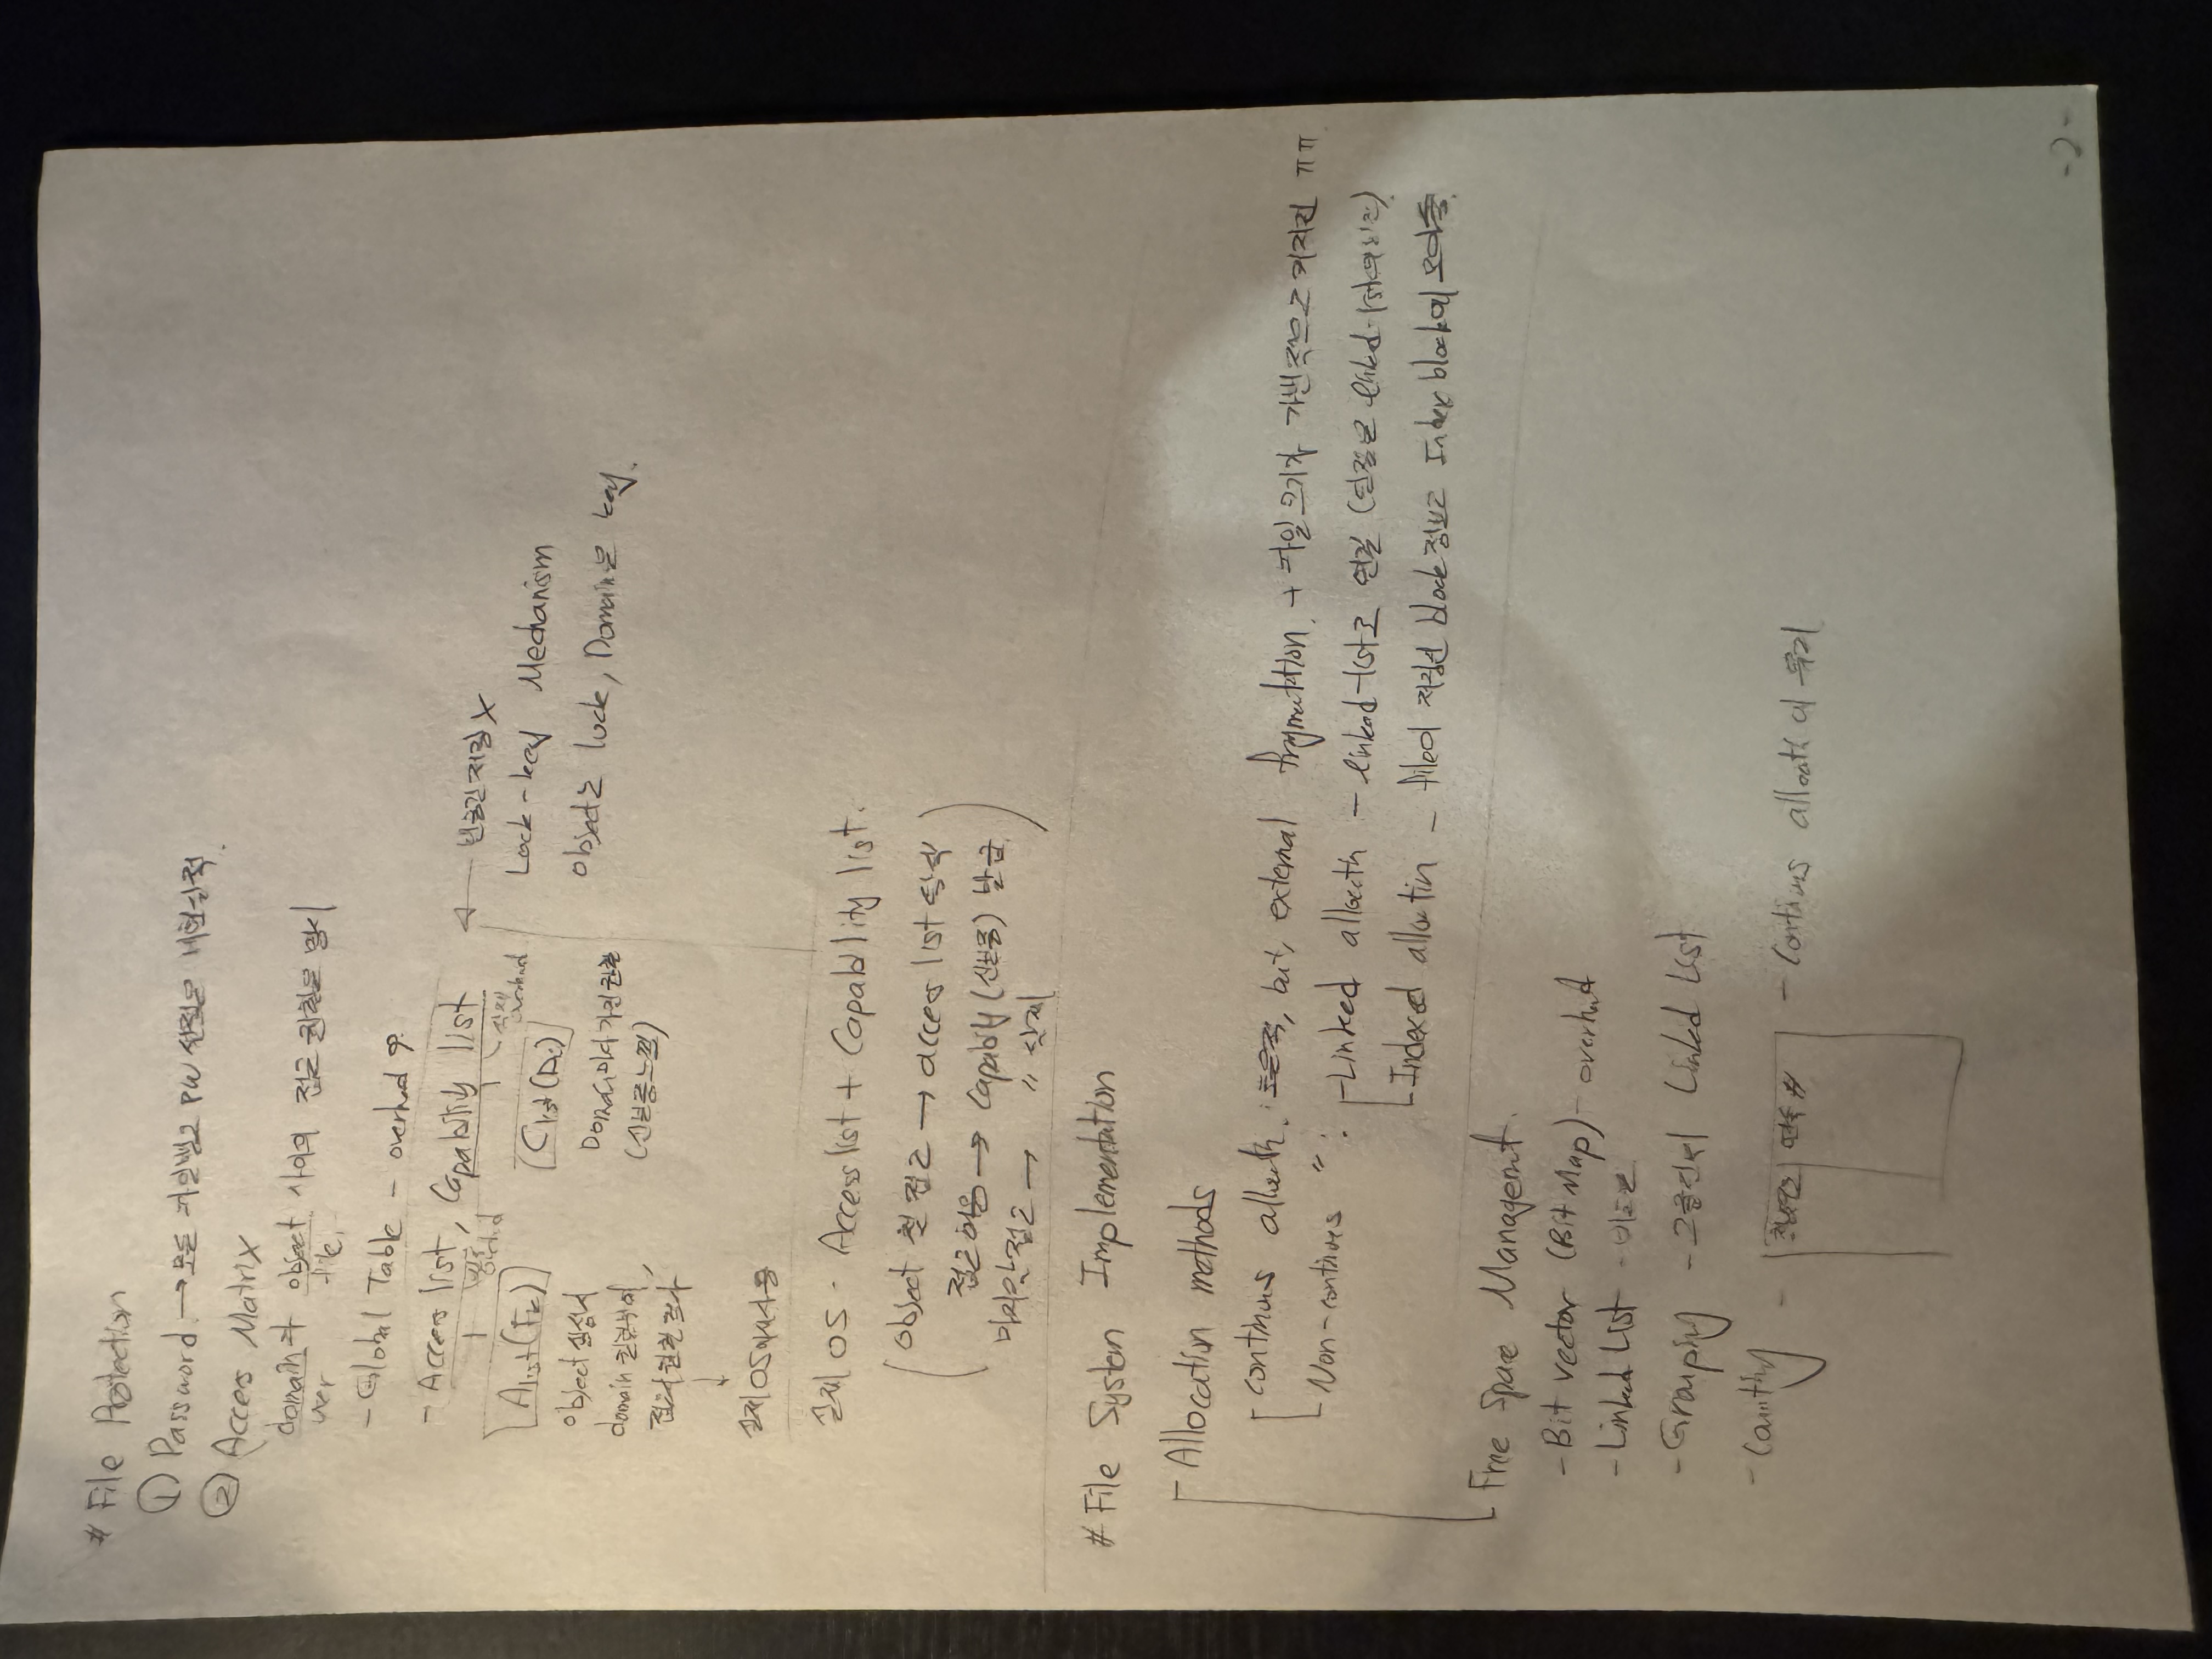 # File Protection
① Password → 모든 파일별로 PW 설정은 비현실적.
② Access Matrix
domain과 object 사이의 접근 권한을 명시
user file
- Global Table - overhead
- Access list, Capability list ← 빈공간 저장 X
overhead
overhead
Alist(Fk)
Clist(Di)
Lock-key Mechanism
object 생성시
Domain마다 가진 권한
Object는 lock, Domain은 key.
domain
(신분증느낌)
권한 검사
↓
실제 OS에서 사용
실제 OS - Access list + Capability list.
object 첫 접근 → access list 탐색
접근허용 → Capability (신분증) 발급
마지막접근 → " 삭제
# File System Implementation
Allocation methods
continuous allocation : 효율적, but, external fragmentation. + 파일 크기가 가변적으로 커지면 ㅠㅠ
Non-continuous " :
Linked allocation - linked-list로 연결 (단점은 linked-list의
Indexed allocation - file이 저장된 block 정보를 Index block에 모아둠.
Free Space Management.
- Bit vector (Bit Map) - overhead
- Linked List - 비효율
- Grouping - 그룹전체 Linked List
- Counting -
연속 #
- Continuous allocation에 유리
-2-